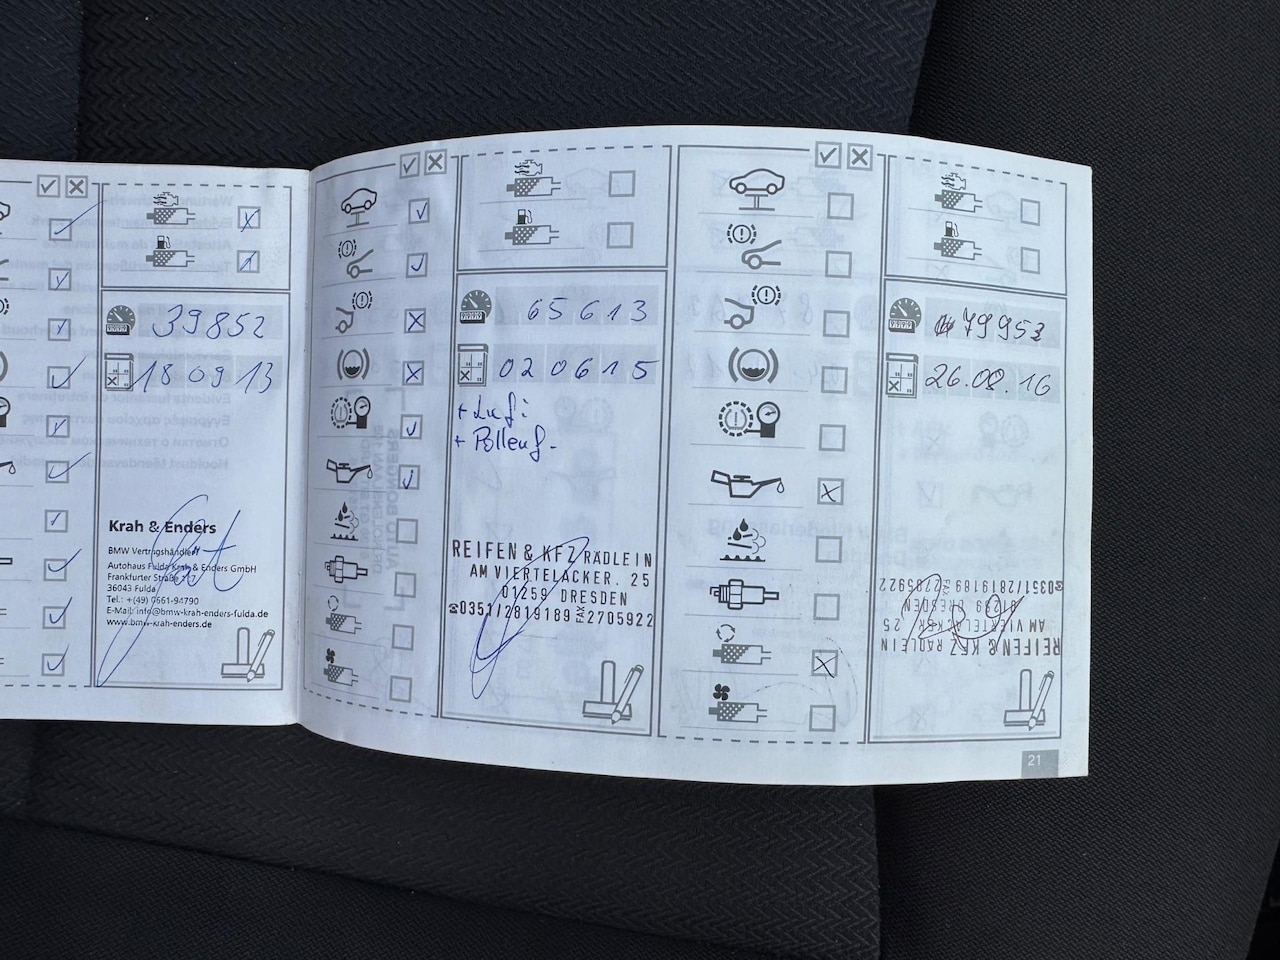 39852
180913
Krah & Enders
BMW Vertragshändler
Autohaus Fulda Krah & Enders GmbH
Frankfurter Straße 127
36043 Fulda
Tel.: +(49) 0661-94790
E-Mail: info@bmw-krah-enders-fulda.de
www.bmw-krah-enders.de
65613
020615
+ Luf:
+ Pollenf.
REIFEN & KFZ RÄDLEIN
AM VIERTELACKER. 25
01259 DRESDEN
☎0351/2819189 FAX 2705922
79953
26.08.16
REIFEN & KFZ RÄDLEIN
AM VIERTELACKER 25
01259 DRESDEN
☎0351/2819189 FAX 2705922
21